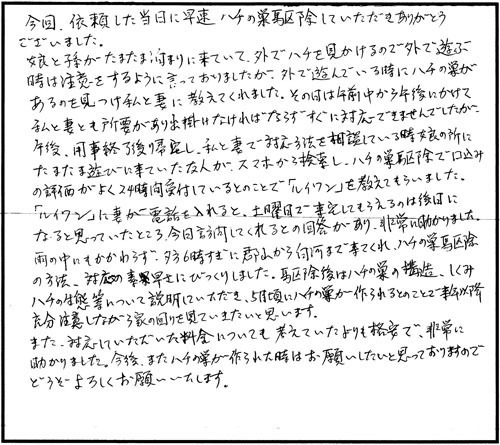 今回、依頼した当日に早速、ハチの巣駆除していただきありがとう
ございました。
娘と孫がたまたま泊まりに来ていて、外でハチを見かけるので外で遊ぶ
時は注意をするように言っておりましたが、外で遊んでいる時にハチの巣が
あるのを見つけ私と妻に教えてくれました。その日は午前中から午後にかけて
私と妻とも所要があり出掛けなければならずすぐに対応できませんでしたが、
午後、用事終了後り帰宅し、私と妻で対応方法を相談している時娘の所に
たまたま遊びに来ていた友人が、スマホから検索し、ハチの巣駆除で口込み
の評価がよく24時間受付しているとのことで「ルイワン」を教えてもらいました。
「ルイワン」に妻が電話を入れると、土曜日で来宅してもらえるのは後日に
なると思っていたところ、今日訪問してくれるとの回答があり、非常に助かりました。
雨の中にもかかわらず、夕方6時すぎに郡山から白河まで来てくれ、ハチの巣駆除
の方法、対応の素早さにびっくりしました。駆除後はハチの巣の構造、しくみ
ハチの生態等について説明していただき、5月頃にハチの巣が作られるとのことで来年以降
充分注意しながら家の回りを見ていきたいと思います。
また、対応していただいた料金についても考えていたよりも格安で、非常に
助かりました。今後、またハチの巣が作られた時はお願いしたいと思っておりますので
どうぞよろしくお願いいたします。